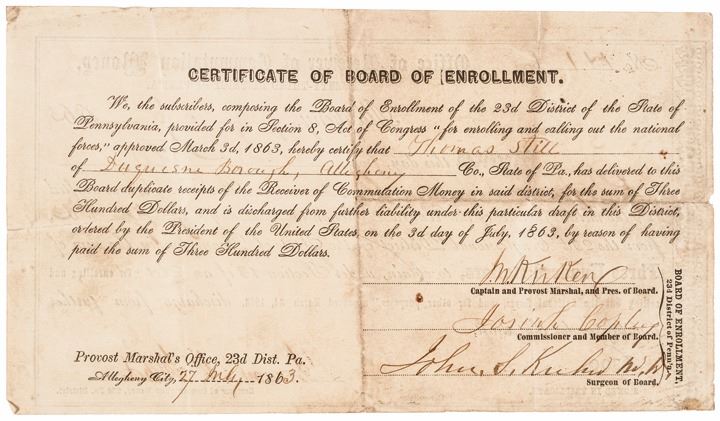 CERTIFICATE OF BOARD OF ENROLLMENT.
We, the subscribers, composing the Board of Enrollment of the 23d District of the State of
Pennsylvania, provided for in Section 8, Act of Congress "for enrolling and calling out the national
forces," approved March 3d, 1863, hereby certify that Thomas Still
of Duquesne Borough, Allegheny Co., State of Pa., has delivered to this
Board duplicate receipts of the Receiver of Commutation Money in said district, for the sum of Three
Hundred Dollars, and is discharged from further liability under this particular draft in this District,
ordered by the President of the United States, on the 3d day of July, 1863, by reason of having
paid the sum of Three Hundred Dollars.
Captain and Provost Marshal, and Pres. of Board.
Josiah Copley
Commissioner and Member of Board.
John S.
Surgeon of Board.
Provost Marshal's Office, 23d Dist. Pa.
Allegheny City, 27 1863.
BOARD OF ENROLLMENT,
23d District of Penn'a.